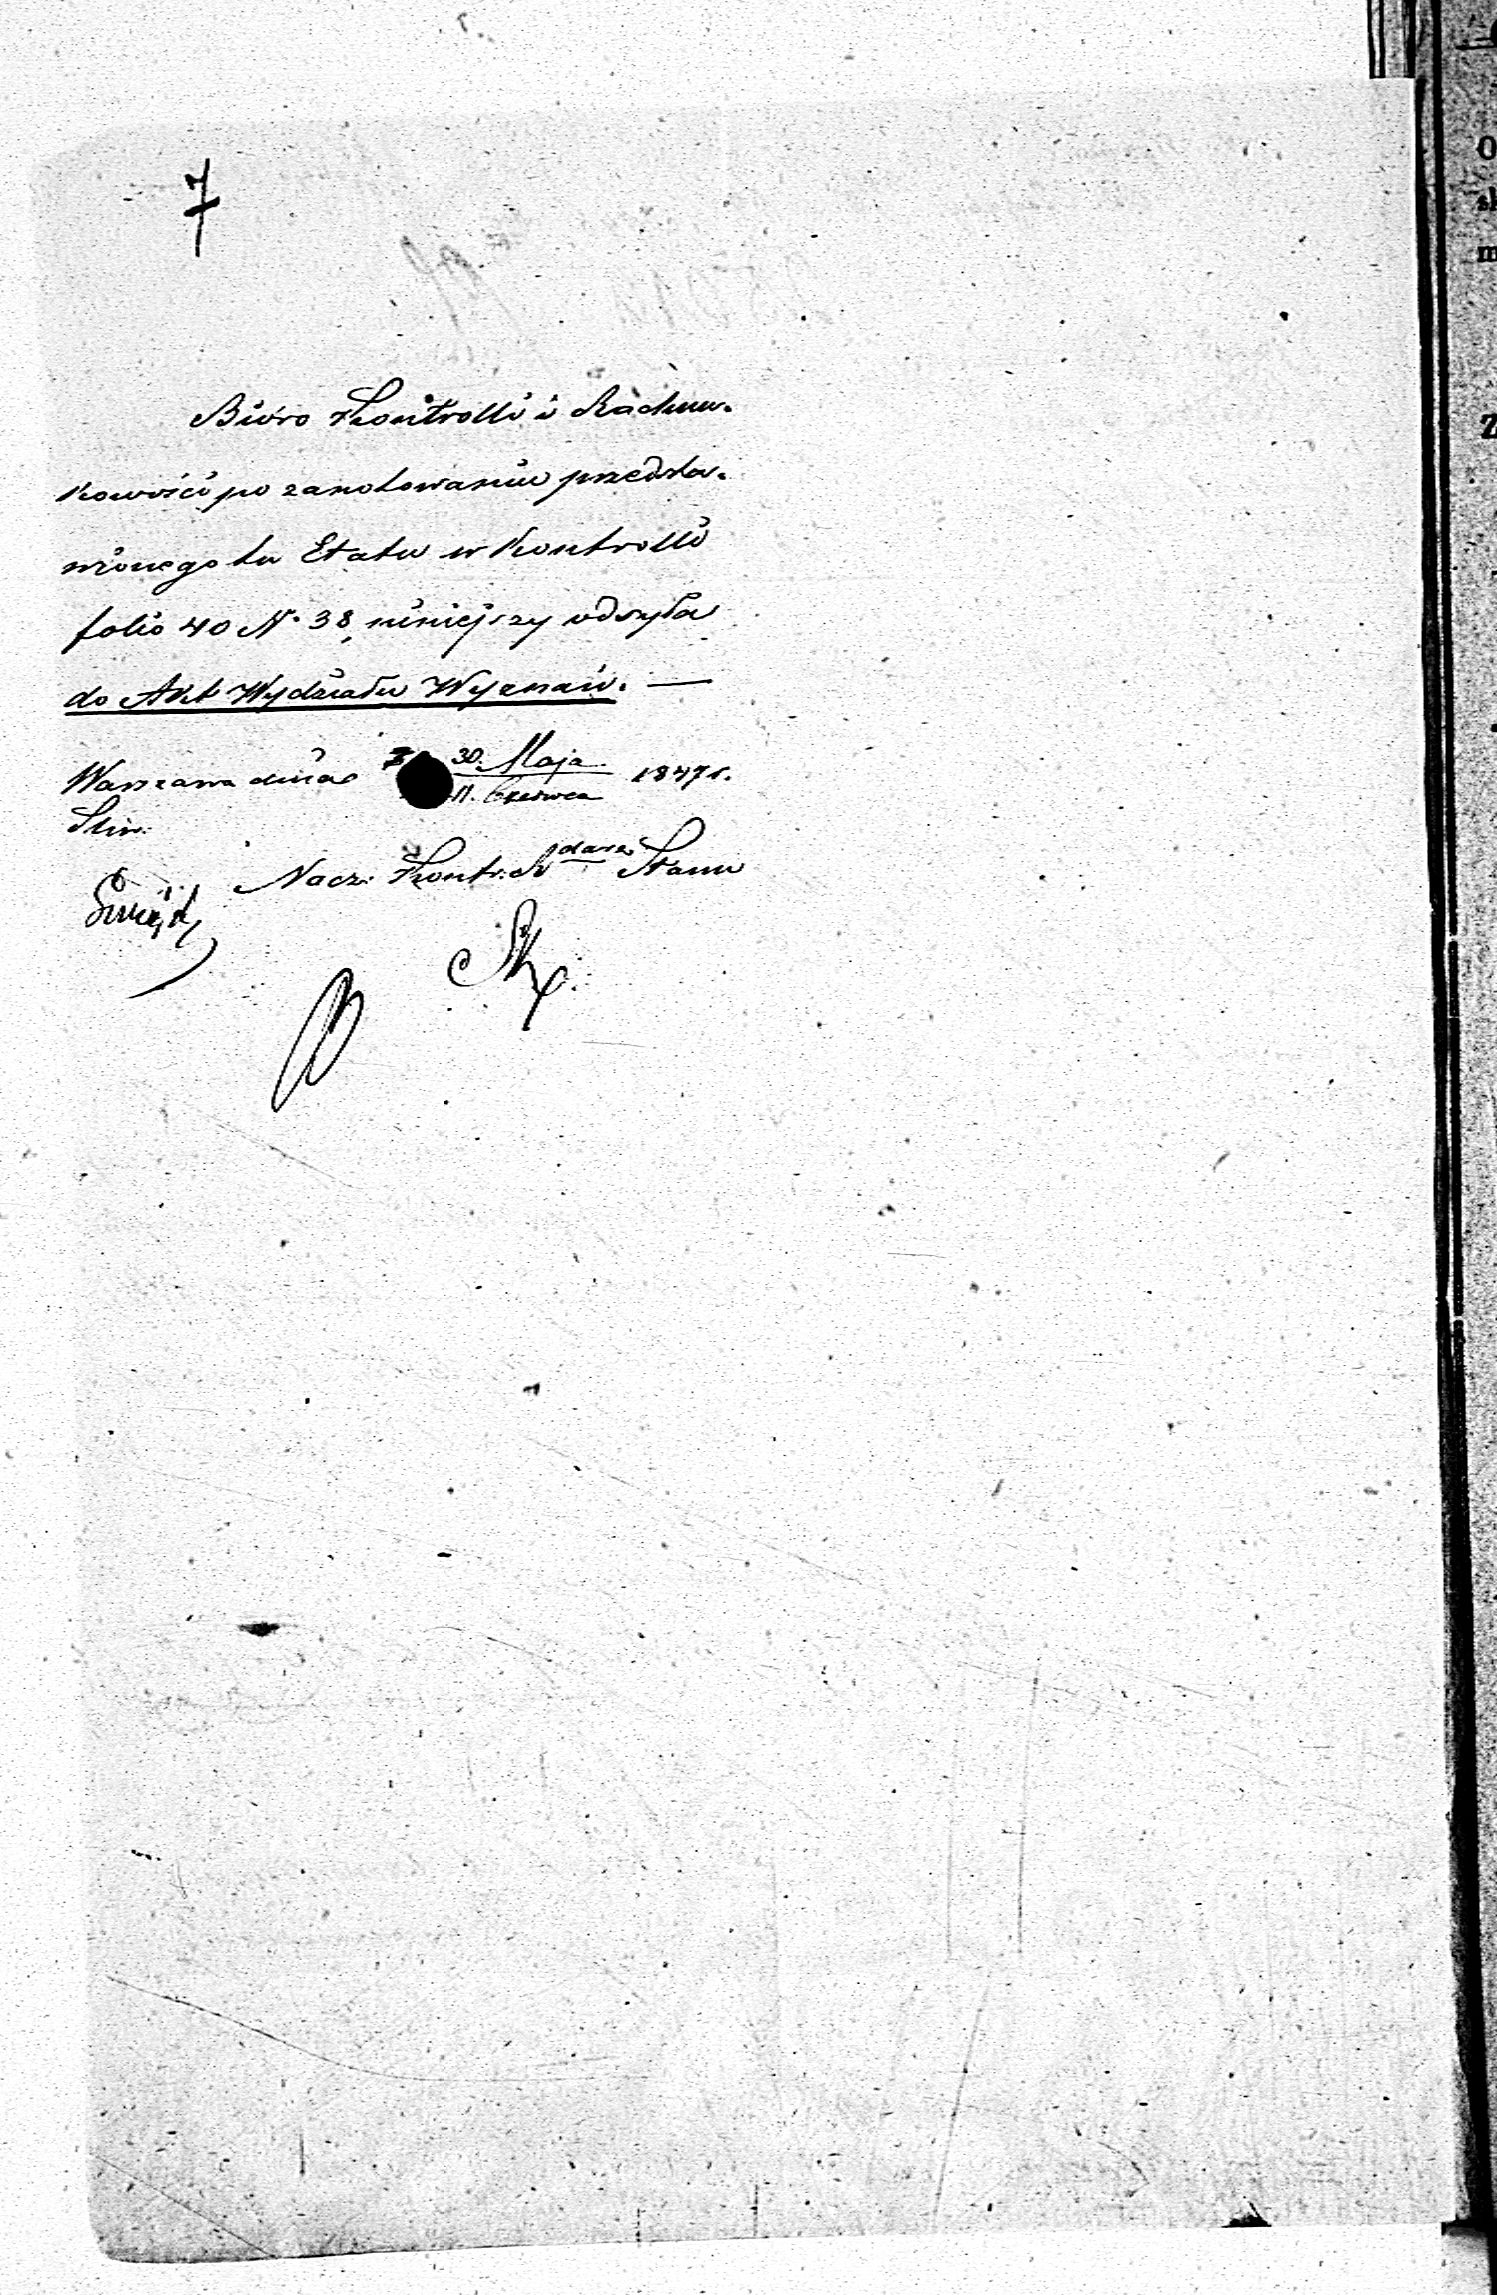 7
Bióro Kontrolli i Rachun-
kowości po zanotowaniu przedsta-
wionego tu Etatu w Kontrolli
folio 40 N. 38, niniejszy odsyła
do Akt Wydziału Wyznań. —
Warszawa dnia 30. Maja 1847 r.
11. Czerwca
Nacz: Kontr: Radca Stanu